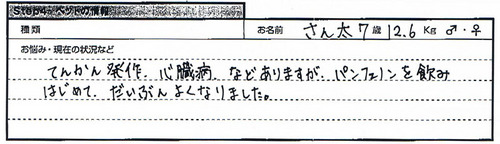 Step4. ペットの情報
種類 お名前 さん太 7歳 12.6 Kg ♂・♀
お悩み・現在の状況など
てんかん発作、心臓病、などありますが、パンフェノンを飲み
はじめて、だいぶんよくなりました。